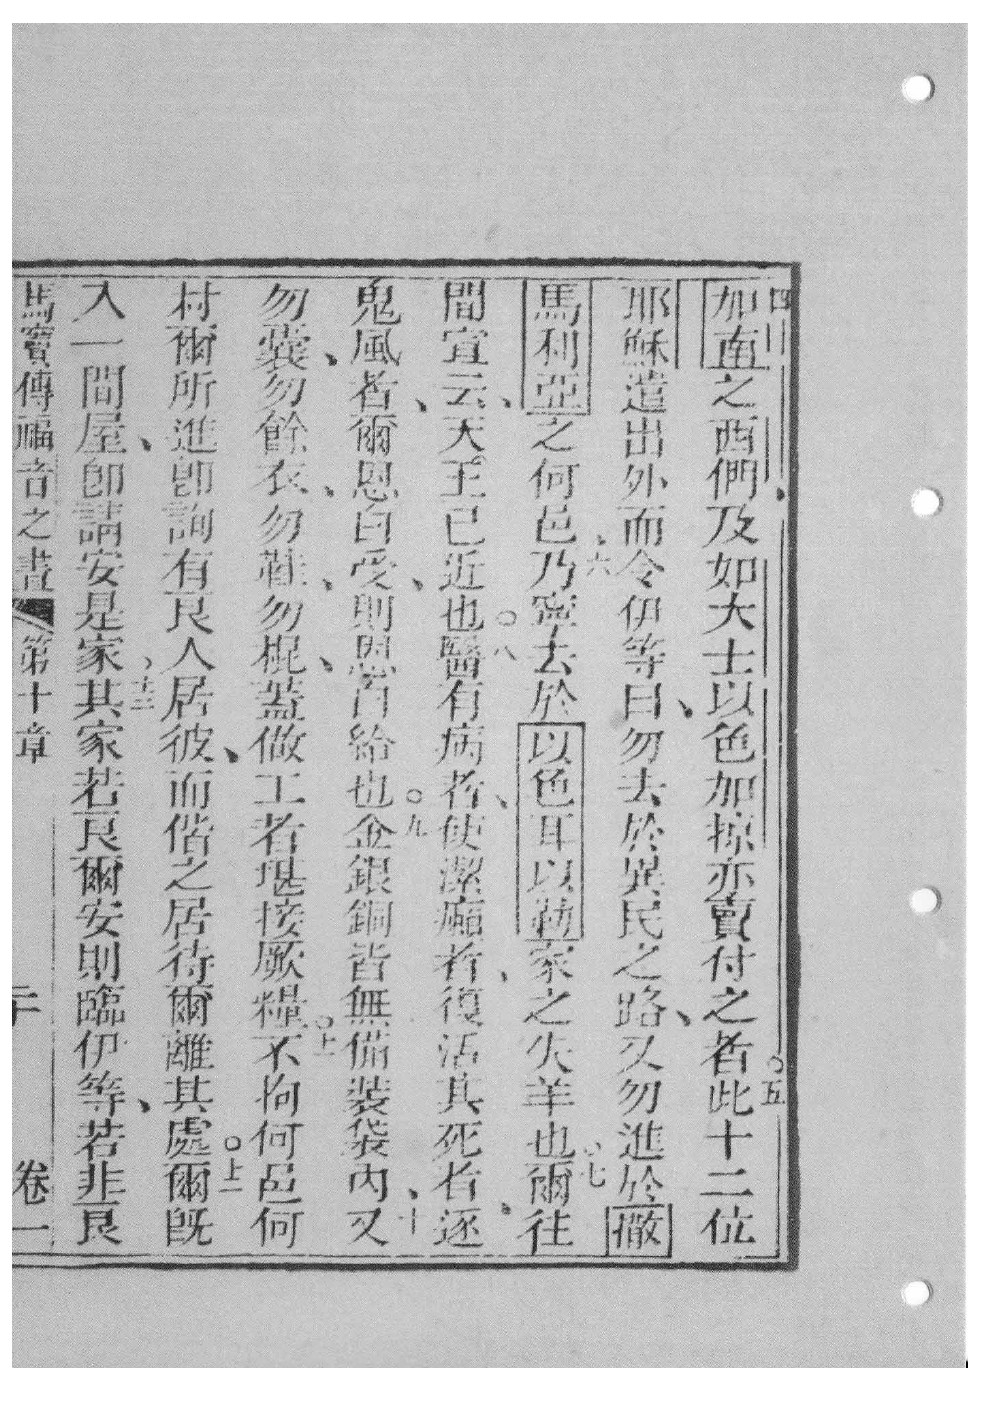 四加南之西們及如大士以色加掠亦賣付之者○五此十二位
耶穌遣出外而令伊等曰勿去於異民之路又勿進於撒
馬利亞之何邑六乃寧去於以色耳以勒家之失羊也○七爾往
間宜云天王已近也○八醫有病者使潔癩者復活其死者逐
鬼風者爾恩白受則恩白給也○九金銀銅皆無備裝袋內十又
勿囊勿餘衣勿鞋勿棍蓋做工者堪接厥糧○十一不拘何邑何
村爾所進卽詢有良人居彼而偕之居待爾離其處○十二爾旣
入一間屋卽請安是家十三其家若良爾安則臨伊等若非良
馬竇傳福音之書 第十章 二十 卷一